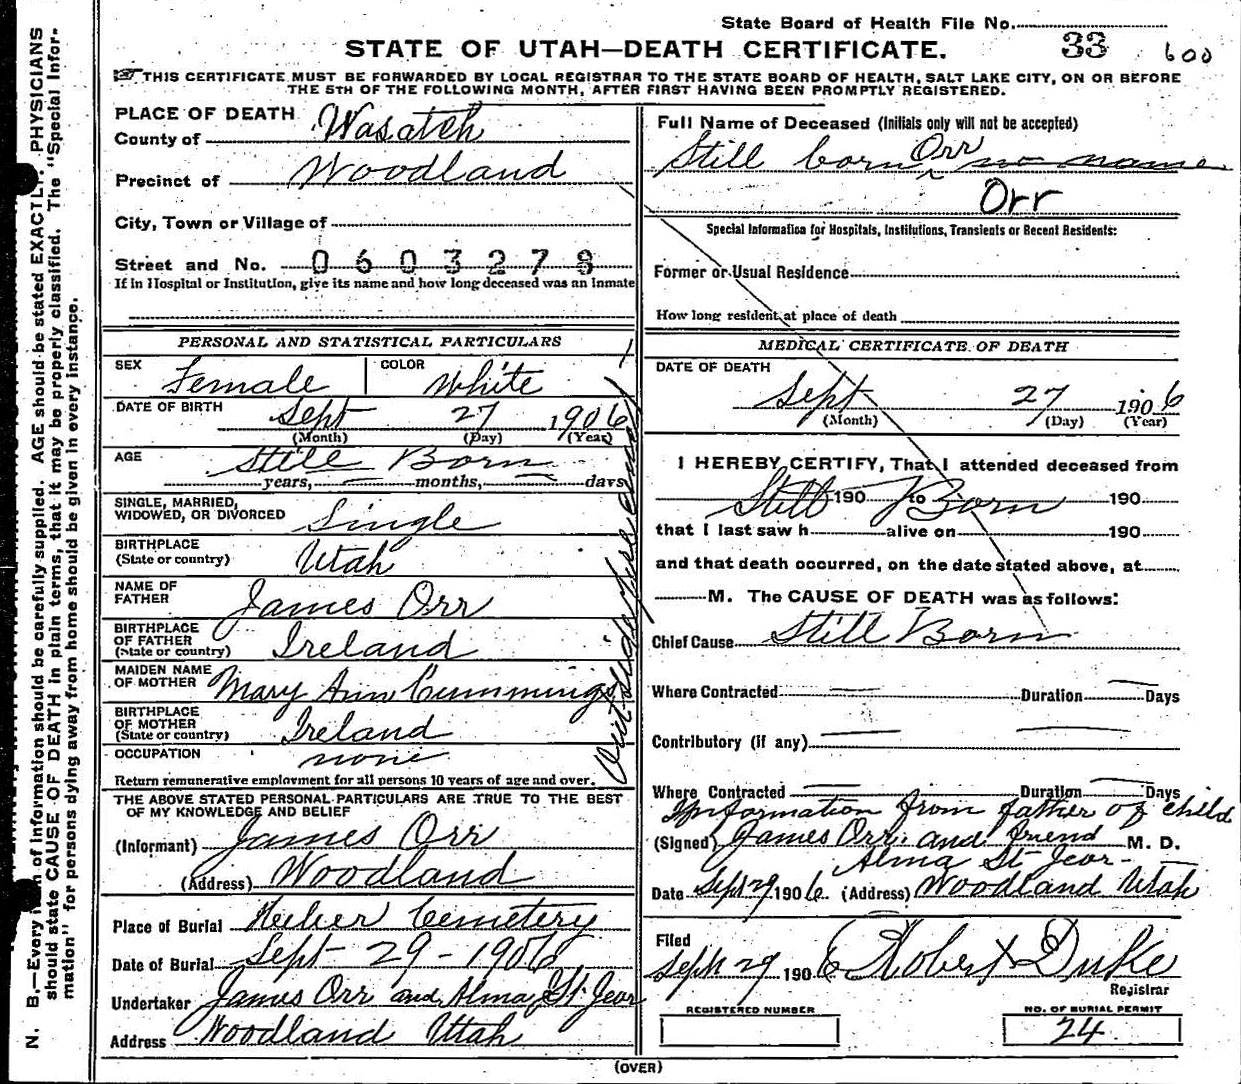 State Board of Health File No.
STATE OF UTAH—DEATH CERTIFICATE. 33 600
THIS CERTIFICATE MUST BE FORWARDED BY LOCAL REGISTRAR TO THE STATE BOARD OF HEALTH, SALT LAKE CITY, ON OR BEFORE
THE 5TH OF THE FOLLOWING MONTH, AFTER FIRST HAVING BEEN PROMPTLY REGISTERED.
PLACE OF DEATH
County of Wasatch
Precinct of Woodland
City, Town or Village of
Street and No. 0603278
If in Hospital or Institution, give its name and how long deceased was an Inmate
PERSONAL AND STATISTICAL PARTICULARS
SEX Female COLOR White
DATE OF BIRTH Sept 27 1906
(Month) (Day) (Year)
AGE Still Born
years, months, days
SINGLE, MARRIED,
WIDOWED, OR DIVORCED Single
BIRTHPLACE
(State or country) Utah
NAME OF
FATHER James Orr
BIRTHPLACE
OF FATHER
(State or country) Ireland
MAIDEN NAME
OF MOTHER Mary Ann Cummings
BIRTHPLACE
OF MOTHER
(State or country) Ireland
OCCUPATION none
Return remunerative employment for all persons 10 years of age and over.
THE ABOVE STATED PERSONAL PARTICULARS ARE TRUE TO THE BEST
OF MY KNOWLEDGE AND BELIEF
(Informant) James Orr
(Address) Woodland
Place of Burial Heber Cemetery
Date of Burial Sept-29-1906
Undertaker James Orr and Alma St. Jeor
Address Woodland Utah
Full Name of Deceased (Initials only will not be accepted)
Still born Orr no name
Orr
Special Information for Hospitals, Institutions, Transients or Recent Residents:
Former or Usual Residence
How long resident at place of death
MEDICAL CERTIFICATE OF DEATH
DATE OF DEATH
Sept 27 1906
(Month) (Day) (Year)
I HEREBY CERTIFY, That I attended deceased from
Still 190 to Born 190
that I last saw h alive on 190
and that death occurred, on the date stated above, at
M. The CAUSE OF DEATH was as follows:
Chief Cause Still Born
Where Contracted Duration Days
Contributory (if any)
Where Contracted Duration Days
Information from father of child
(Signed) James Orr. and friend M. D.
Alma St Jeor-
Date Sept 29 1906 (Address) Woodland Utah
Filed
Sept 29 1906 Robert Duke
Registrar
REGISTERED NUMBER
NO. OF BURIAL PERMIT
24
(OVER)
N. B.—Every item of information should be carefully supplied. AGE should be stated EXACTLY. PHYSICIANS
should state CAUSE OF DEATH in plain terms, that it may be properly classified. The "Special Infor-
mation" for persons dying away from home should be given in every instance.